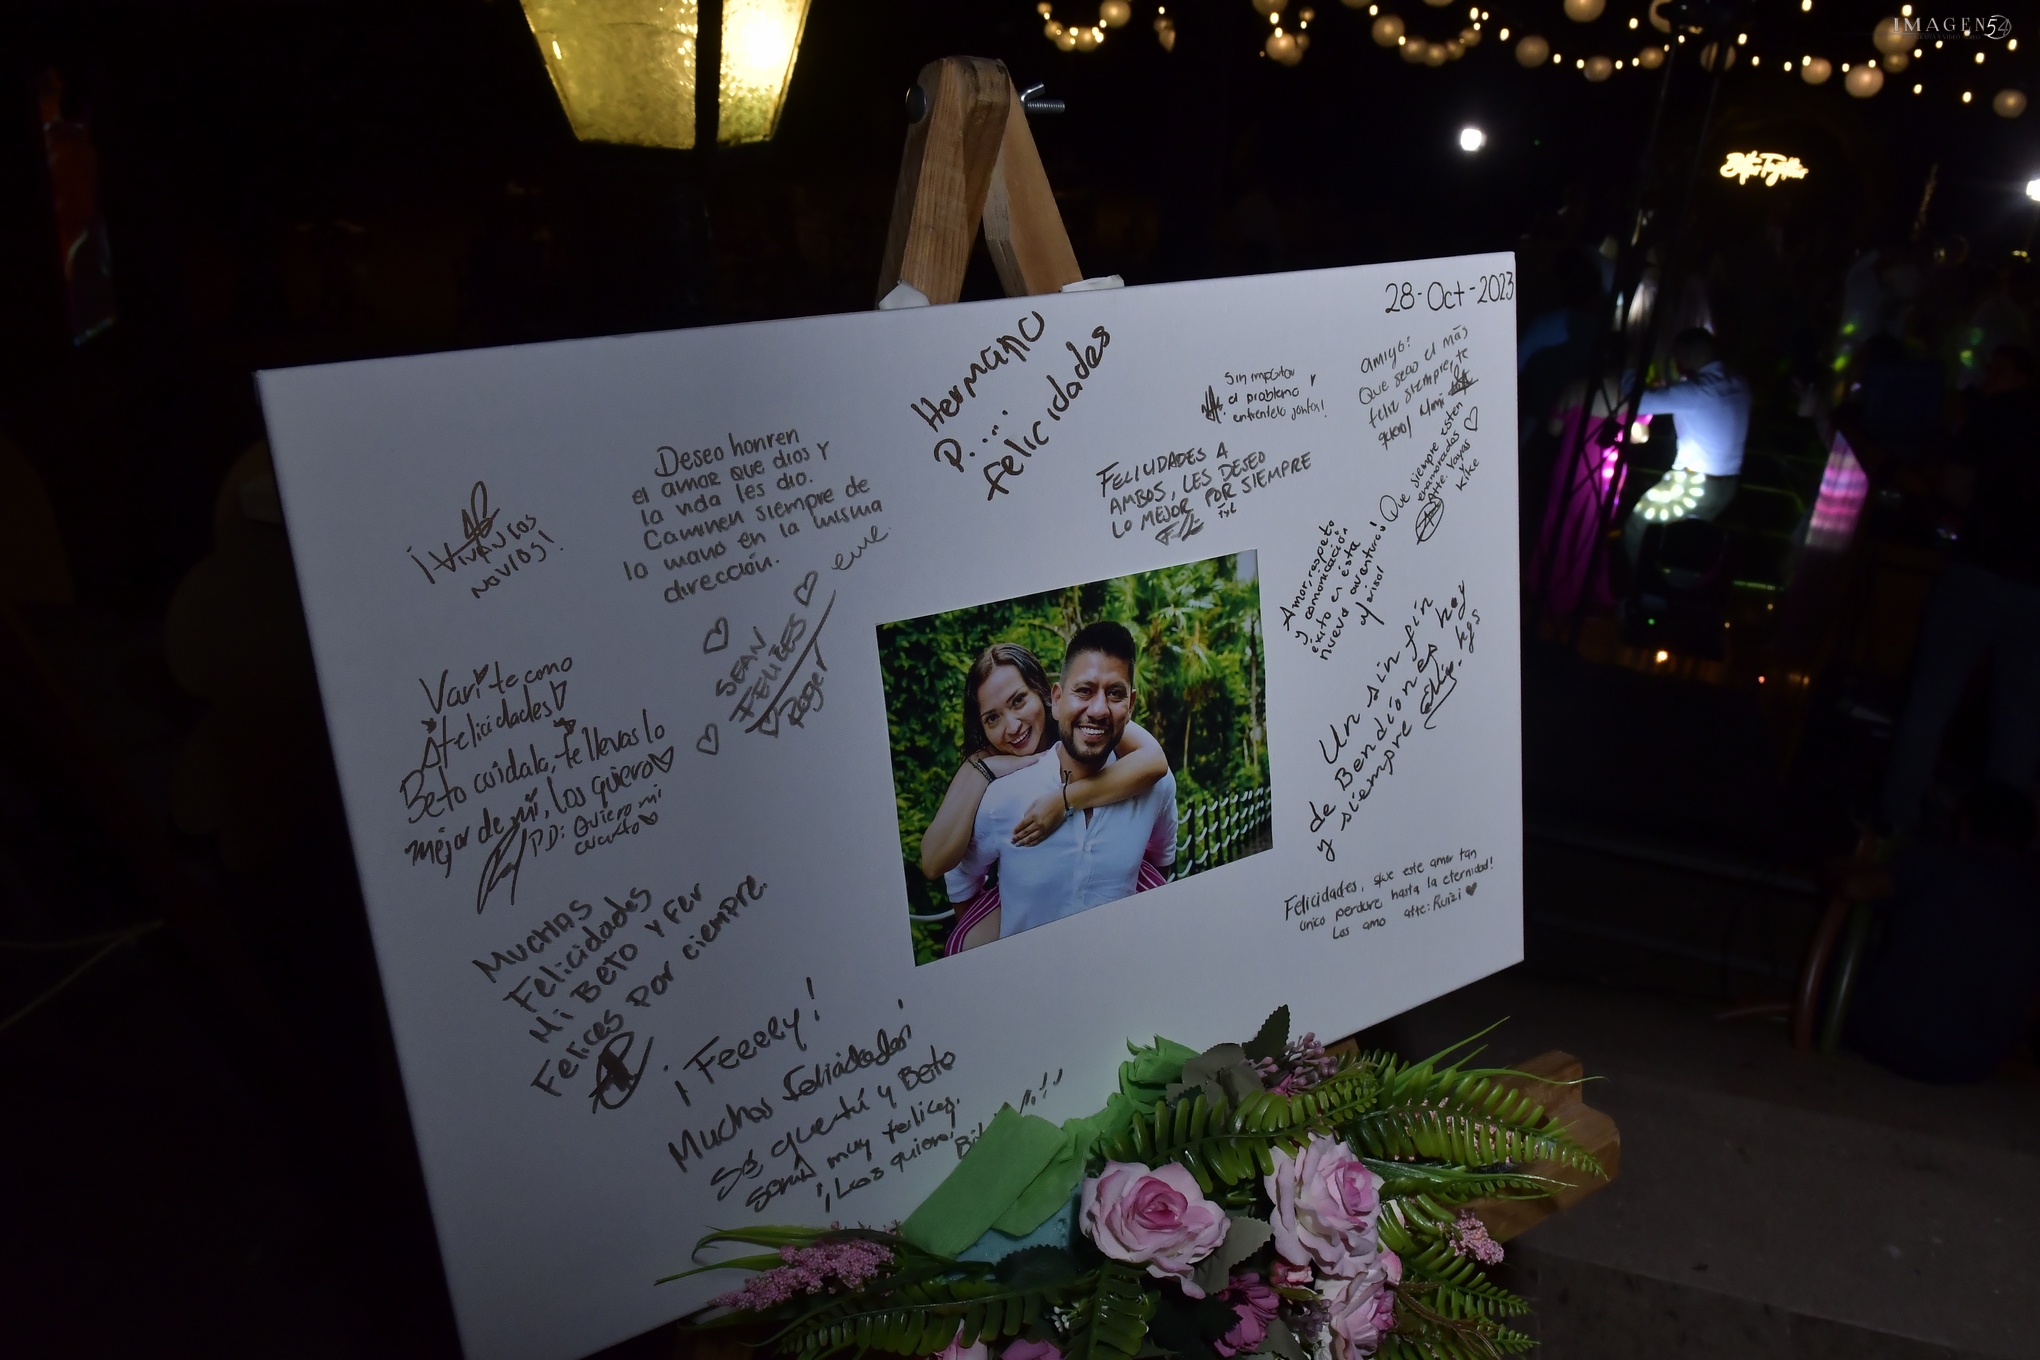 IMAGEN 54
28-Oct-2023
Hermano
P....
felicidades
Sin importar
el problema
entrentelo juntos!
amigo:
Que seas el más
feliz siempre, te
quiero/ a mi
Que siempre esten
enamorados
Atte. Vayas
Kike
Deseo honren
el amor que dios y
la vida les dio.
Caminen siempre de
la mano en la misma
dirección.
FELICIDADES A
AMBOS, LES DESEO
LO MEJOR POR SIEMPRE
¡VIVAN LOS
NOVIOS!
Amor, respeto
y comunicación
éxito en ésta
nueva aventura!
SEAN
FELICES
Roger
Vari te como
felicidades
Beto cuidala, te llevas lo
mejor de mi, los quiero
PD: Quiero mi
cuarto
Un sin fin
de Bendiones hoy
y siempre
Felicidades, que este amor tan
único perdure hasta la eternidad!
Los amo atte: Ruizi
Muchas
Felicidades
Mi Beto y Fer
Felices por ciempre.
¡Feeely!
Muchas felicidades!
Sé que tú y Beto
serán muy felices.
¡Los quiero!